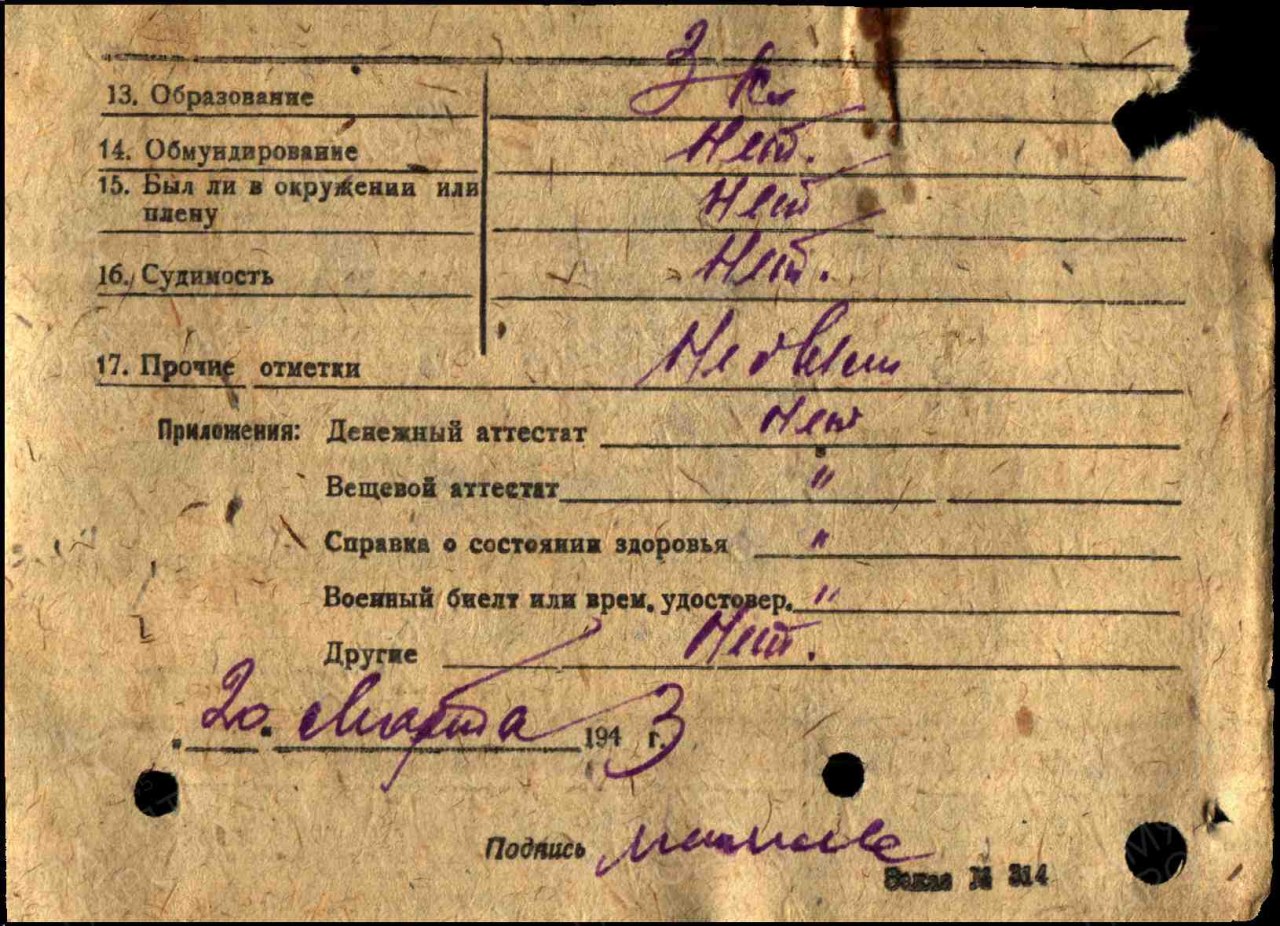 13. Образование 3 кл
14. Обмундирование Нет.
15. Был ли в окружении или
плену Нет
16. Судимость Нет.
17. Прочие отметки
Приложения: Денежный аттестат Нет
Вещевой аттестат "
Справка о состоянии здоровья "
Военный биелт или врем. удостовер. "
Другие Нет.
"20" Марта 1943 г.
Подпись
Заказ № 314